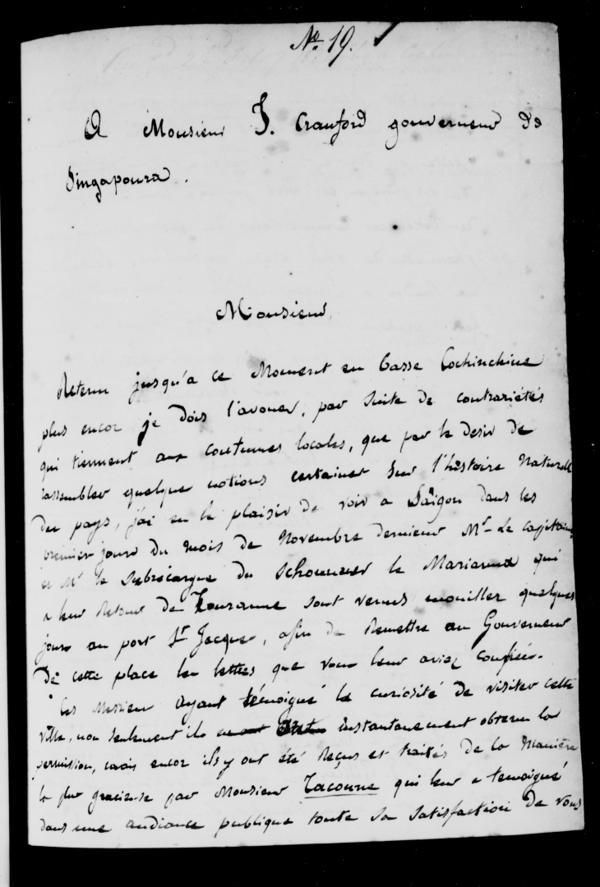 No. 19.
A Monsieur J. Crauford gouverneur de
Singapoura.
Monsieur,
Retenu jusqu'a ce Moment en basse Cochinchine
plus encor je dois l'avouer, par suite de contrariétés
qui tiennent aux coutumes locales, que par le desir de
rassembler quelque notions certaines sur l'histoire Naturelle
du pays, j'ai eu le plaisir de voir a Saïgon dans les
premier jours du mois de Novembre dernier Mr. Le capitaine
et Mr. le Subrécargue du Schouner le Marianne qui
a leur Retour de Touranne sont venus mouiller quelques
jours au port St. Jacques, afin de Remettre au Gouverneur
De cette place les lettres, que vous leur aviez confiées.
Ces Messieurs ayant témoigné la curiosité de visiter cette
ville, non seulement ils instantanement obtenu la
permission, mais encor ils y ont été Reçus et traités de la Manière
la plus gracieuse par Monsieur Tacoune qui leur a temoigné
dans une audiance publique toute sa satisfaction de vous